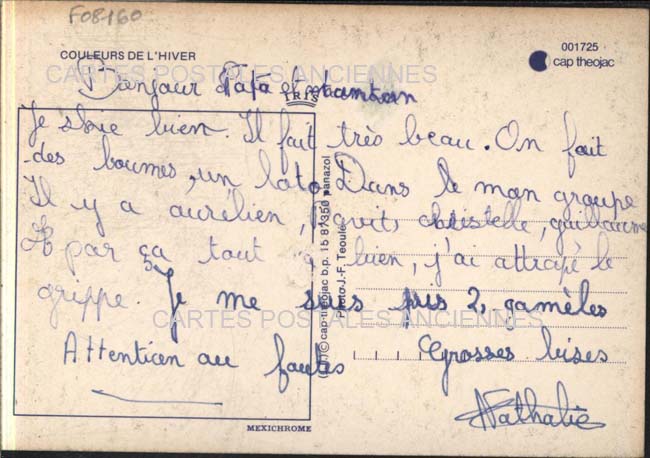 F08160
COULEURS DE L'HIVER
001725
cap theojac
CARTES POSTALES ANCIENNES
Bonjour Papa et maman
IRIS
Je skie bien. Il fait très beau. On fait
des boumes, un loto Dans le mon groupe
Il y a aurélien, christelle, guillaume
par ça tout bien, j'ai attrapé le
grippe. Je me suis pris 2 gamèles
CARTES POSTALES ANCIENNES
Attention au fautes Grosses bises
Nathalie
cap-theojac b.p. 15 87350 panazol
Photo J.-F. Teoulé
MEXICHROME